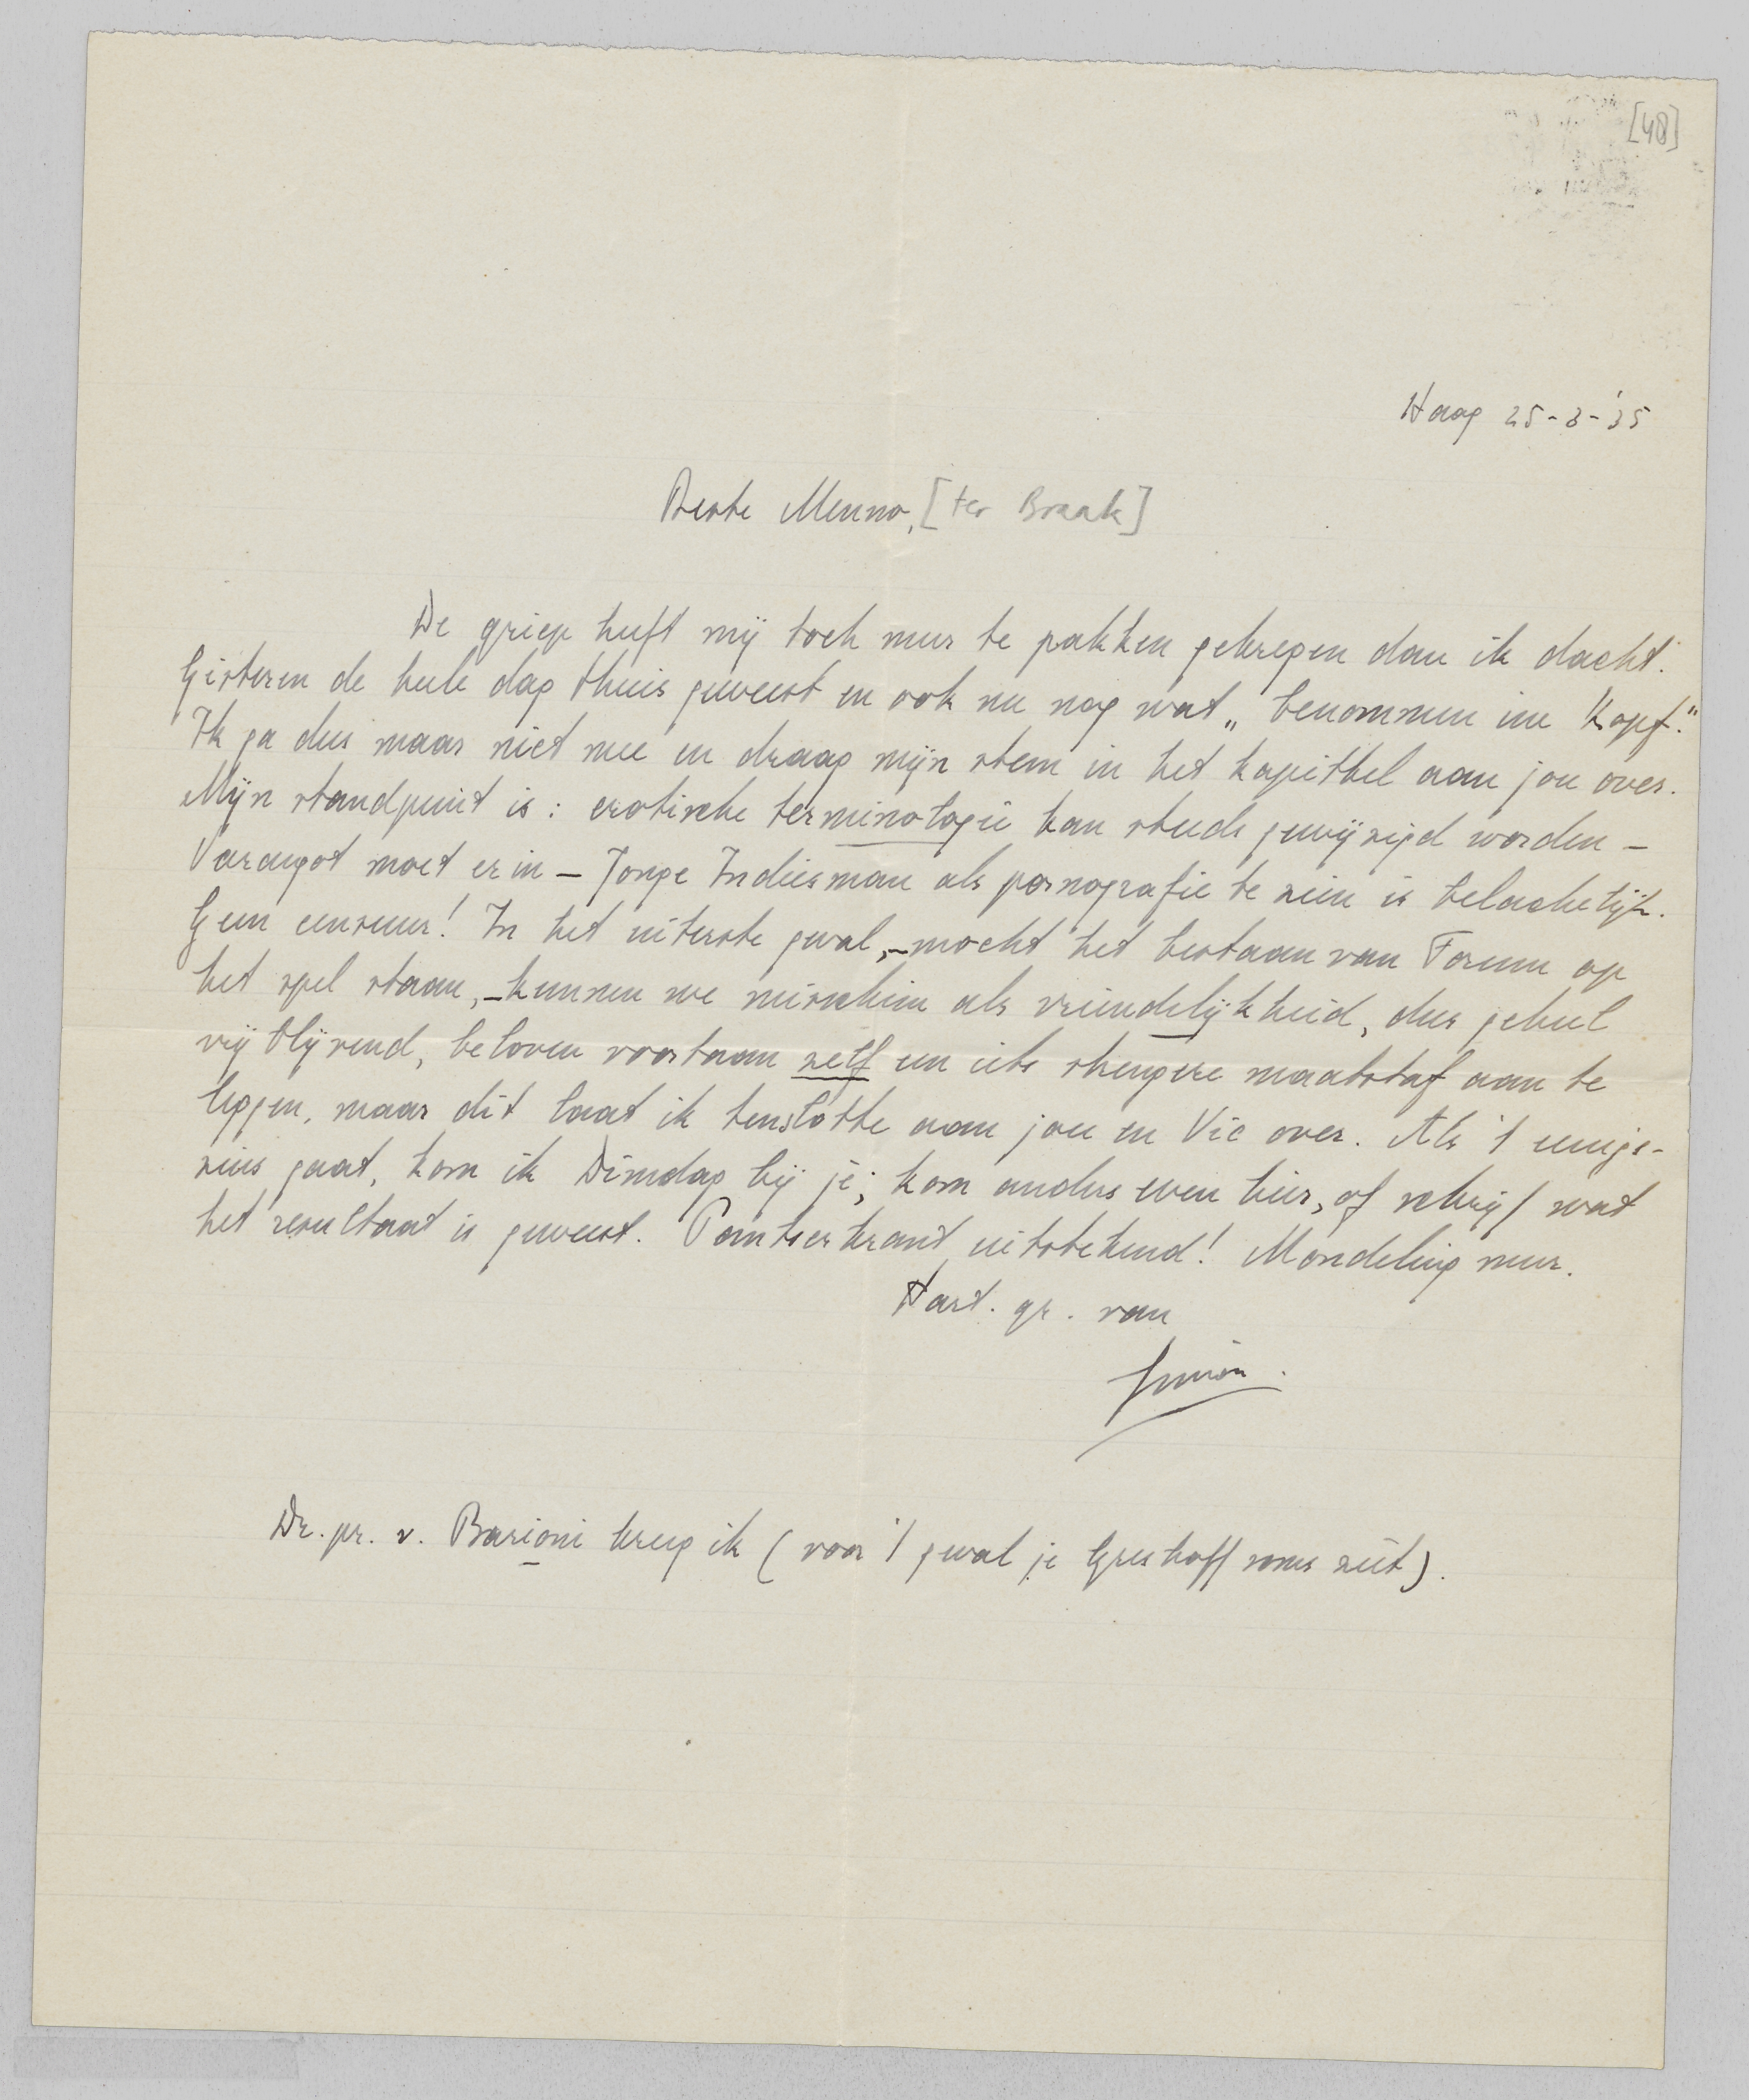 [48]
Haag 25-3-'35
Beste Menno, [ter Braak]
De griep heeft mij toch meer te pakken gekregen dan ik dacht.
Gisteren de heele dag thuis geweest en ook nu nog wat „benommen im Kopf."
Ik ga dus maar niet mee en draag mijn stem in het kapittel aan jou over.
Mijn standpunt is: erotische terminologie kan steeds gewijzigd worden –
Varangot moet erin – Jonge Indiesman als pornografie te zien is belachelijk.
Geen censuur! In het uiterste geval, – mocht het bestaan van Forum op
het spel staan, – kunnen we misschien als vriendelijkheid, dus geheel
vrijblijvend, beloven voortaan zelf een iets strengere maatstaf aan te
leggen, maar dit laat ik tenslotte aan jou en Vic over. Als 't eenigs-
zins gaat, kom ik Dinsdag bij je; kom anders even hier, of schrijf wat
het resultaat is geweest. Pantserkrant uitstekend! Mondeling meer.
Hart. gr. van
Simon.
Dr. pr. v. Barioni kreeg ik (voor 't geval je Greshoff soms ziet).